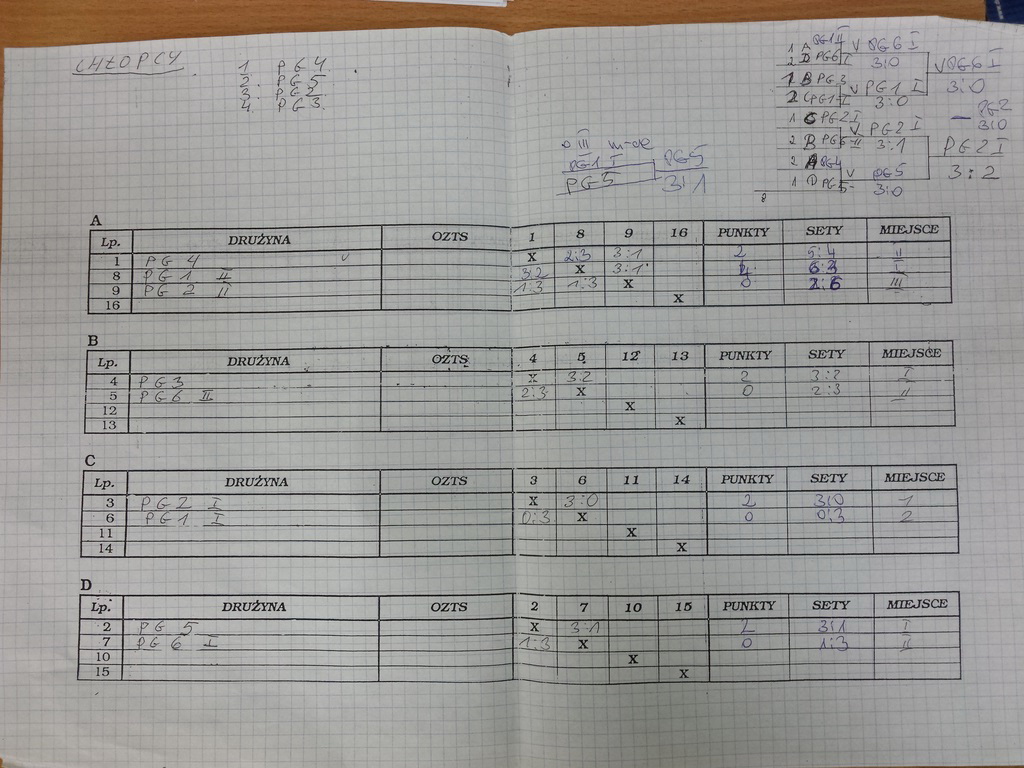 CHŁOPCY
1 PG4
2. PG5
3. PG2
4. PG3
1 A V PG6 I
2 D PG6 I 3:0 V PG6 I
1 B PG3 V PG1 I 3:0
2 C PG1 I 3:0 — PG2
1 C PG2 I V PG2 I 3:0
2 B PG6 II 3:1 PG2 I
2 A PG4 V PG5 3:2
1 D PG5 3:0
o III m-ce
PG1 I PG5
PG5 3:1
A
Lp. DRUŻYNA OZTS 1 8 9 16 PUNKTY SETY MIEJSCE
1 PG 4 X 2:3 3:1 2 5:4 II
8 PG 1 II 3:2 X 3:1 I
9 PG 2 II 1:3 1:3 X 0 2:6 III
16 X
B
Lp. DRUŻYNA OZTS 4 5 12 13 PUNKTY SETY MIEJSCE
4 PG 3 X 3:2 2 3:2 I
5 PG 6 II 2:3 X 0 2:3 II
12 X
13 X
C
Lp. DRUŻYNA OZTS 3 6 11 14 PUNKTY SETY MIEJSCE
3 PG 2 I X 3:0 2 3:0 1
6 PG 1 I 0:3 X 0 0:3 2
11 X
14 X
D
Lp. DRUŻYNA OZTS 2 7 10 15 PUNKTY SETY MIEJSCE
2 PG 5 X 3:1 2 3:1 I
7 PG 6 I 1:3 X 0 1:3 II
10 X
15 X